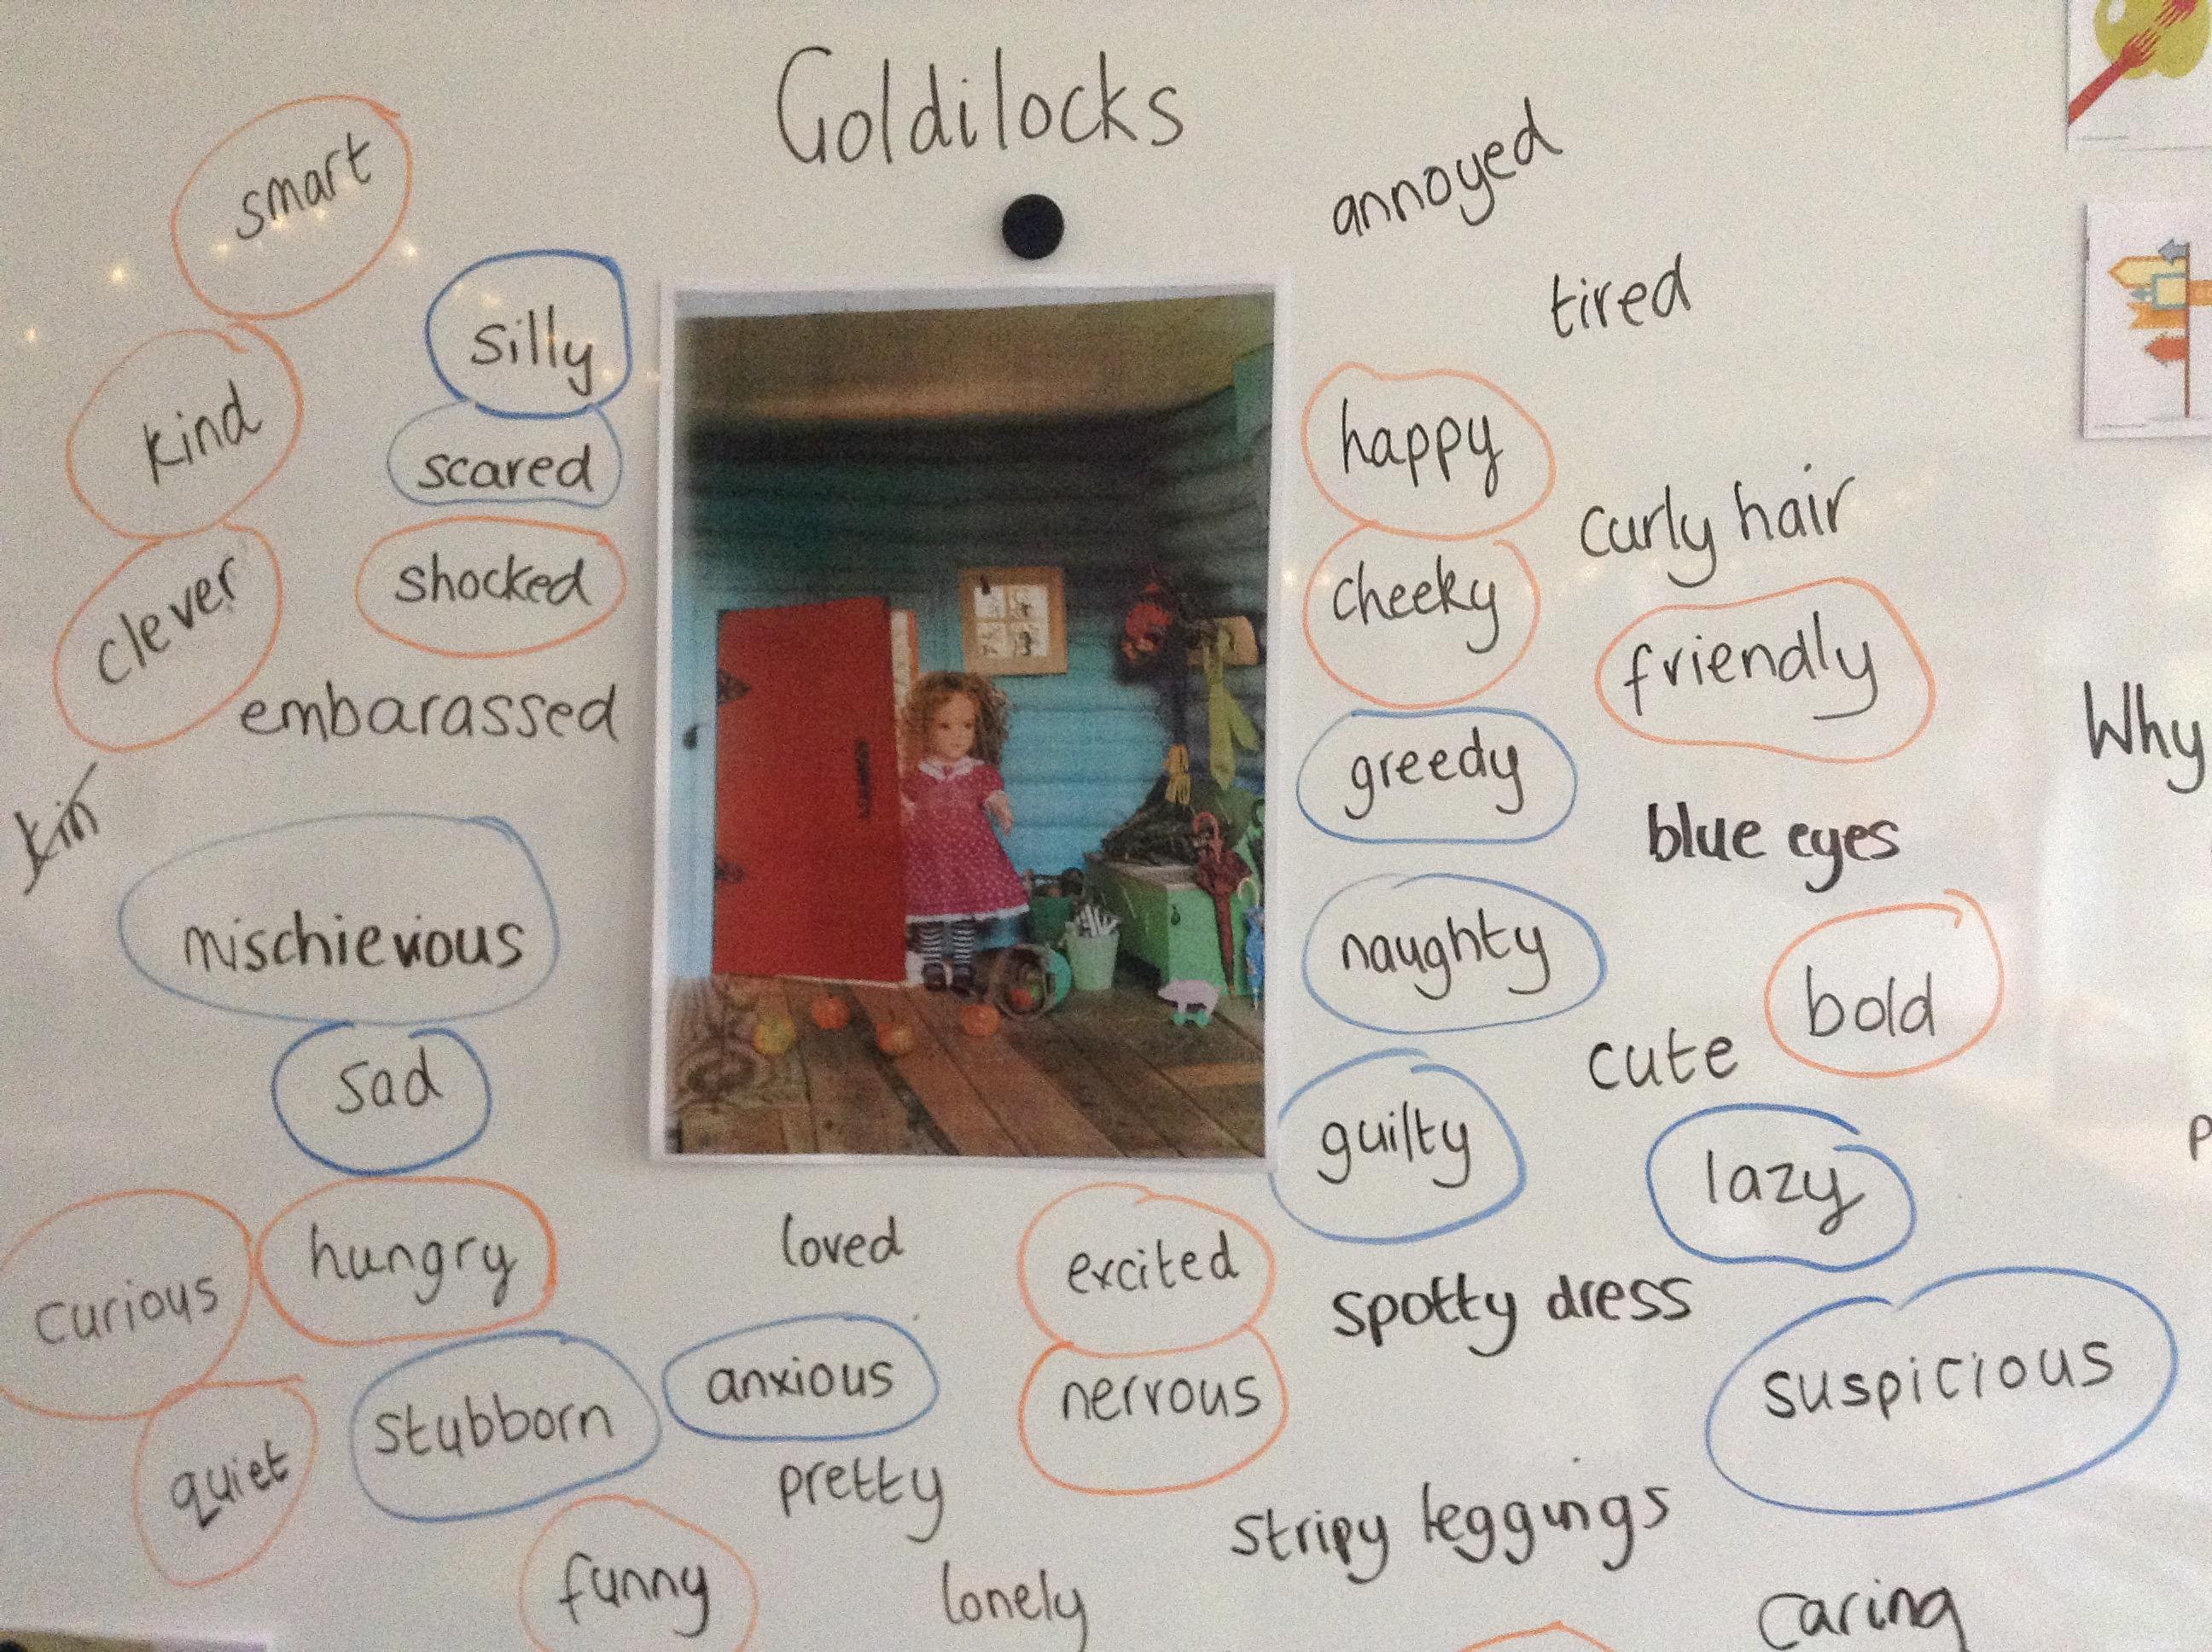 Goldilocks
smart
annoyed
tired
silly
kind
scared
happy
curly hair
clever
shocked
cheeky
friendly
embarassed
greedy
Why
kin
blue eyes
mischievious
naughty
bold
cute
sad
guilty
lazy
curious
hungry
loved
excited
spotty dress
suspicious
stubborn
anxious
nervous
quiet
pretty
stripy leggings
funny
lonely
caring